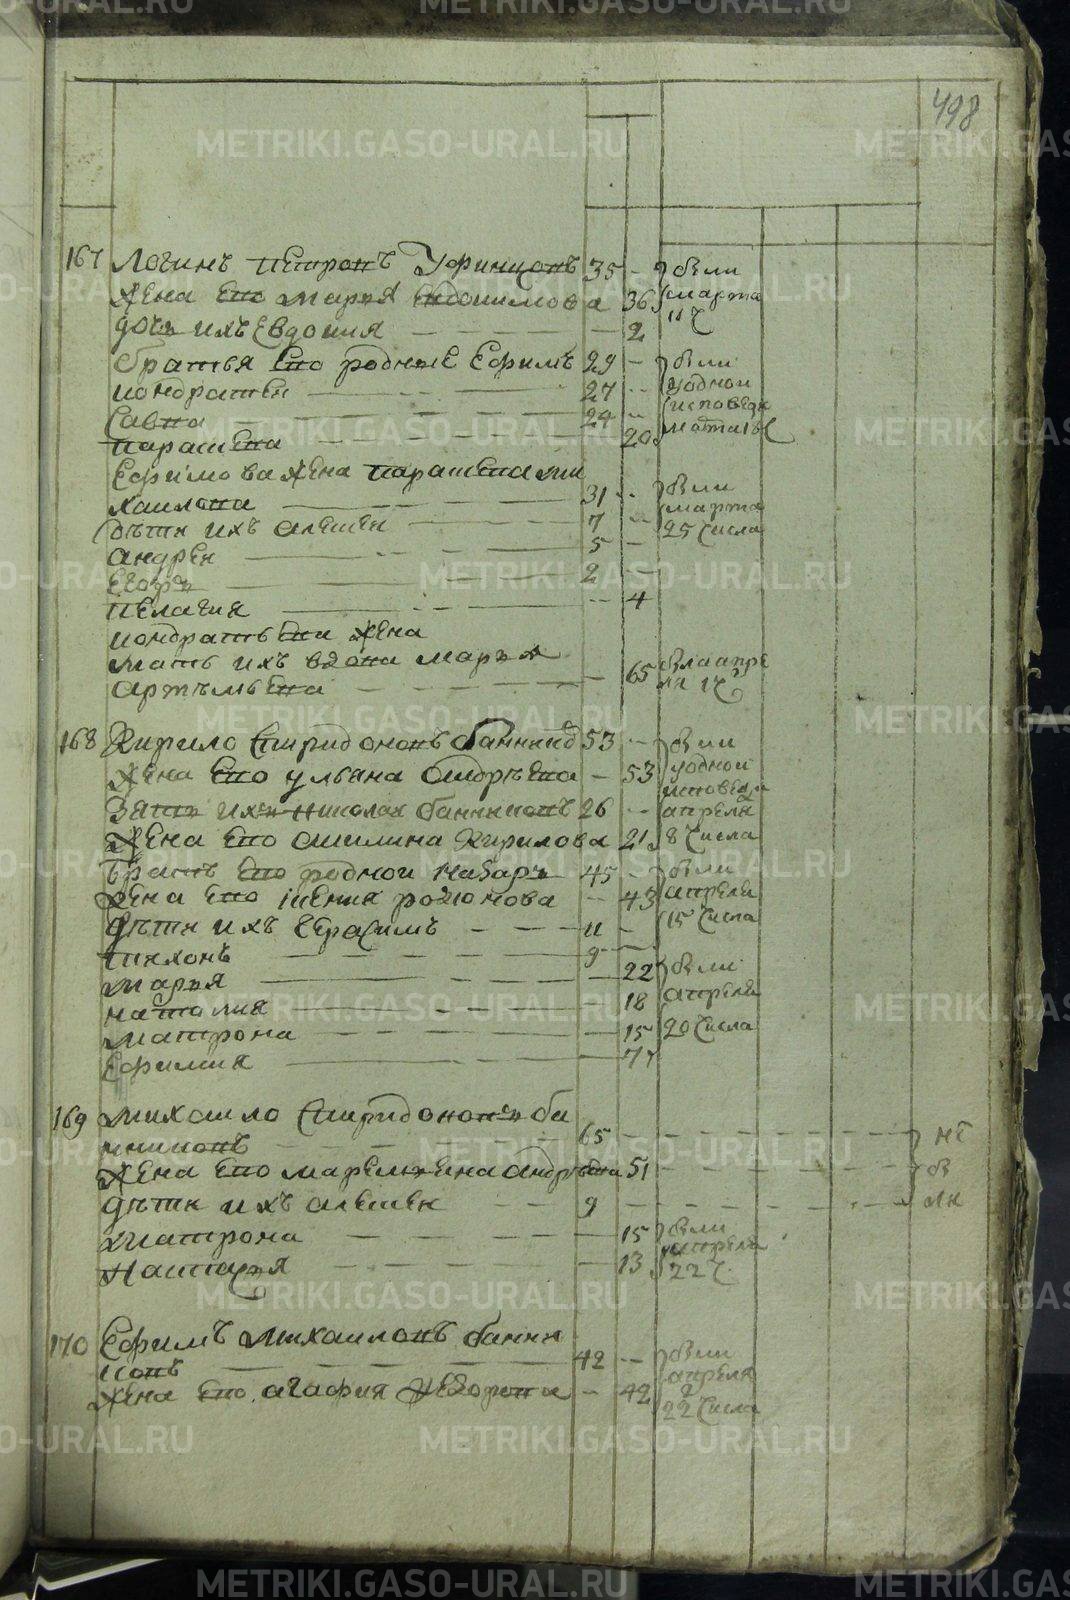 498
167 Логинъ Петровъ Уфинцовъ 35 - были
Жена Его Марья 36 марта
дочь ихъ Евдокия - 2 11 ч
братья Его родные Ефимъ 29 - были
кондратеи 27 - уодной
Савва 24 - исповеди
парасковья 20
Ефимова Жена ми
хаилова 31 - были марта
дѣти ихъ алексеи 7 - 25 числа
андреи 5 -
Егоръ 2 -
пелагия - 4
кондратьева Жена
мать ихъ вдова Марья
артемьева - 65 была апре
ля 1 ч
168 Кирило Спиридоновъ банник 53 - были
Жена Его ульяна андрѣева - 53 уодной
Зять ихъ николаи банниковъ 26 - исповеди
апреля
Жена Его акилина Кирилова 21 8 числа
братъ Его родной назаръ 45 - были
Жена Его ксения родионова - 43 апреля
дѣти ихъ Герасимъ - 11 - 15 числа
тихонъ 9
Марья - 22 были
наталия - 18 апреля
матрона - 15 20 числа
Ефимия - 7
169 михаило Спиридоновъ ба
нниковъ 65 - не
Жена Его андрѣева 51 - бы
дѣти ихъ алексеи 9 - ли
матрона - 15 были
апреля
Настасья - 13 22 ч
170 Ефимъ михаиловъ банни
ковъ 42 - были
апреля
Жена Его агафия - 42 22 числа
METRIKI.GASO-URAL.RU